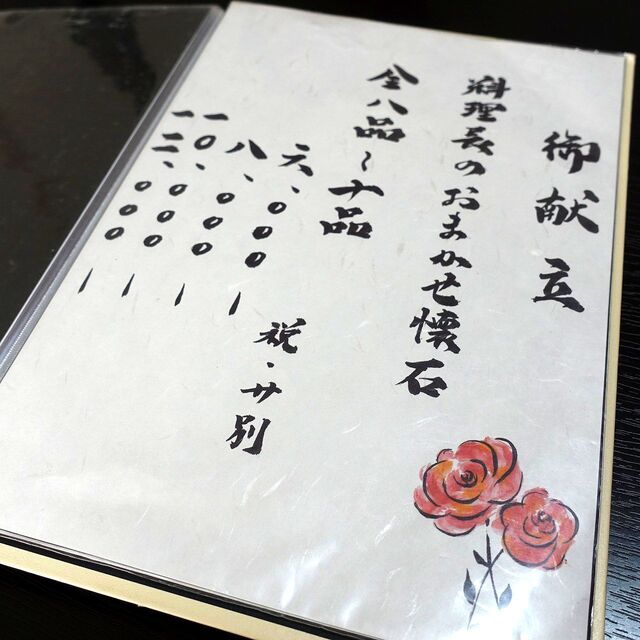 御献立
料理長のおまかせ懐石
全八品〜十品
六、〇〇〇ー
八、〇〇〇ー
一〇、〇〇〇ー
一二、〇〇〇ー
税・サ別